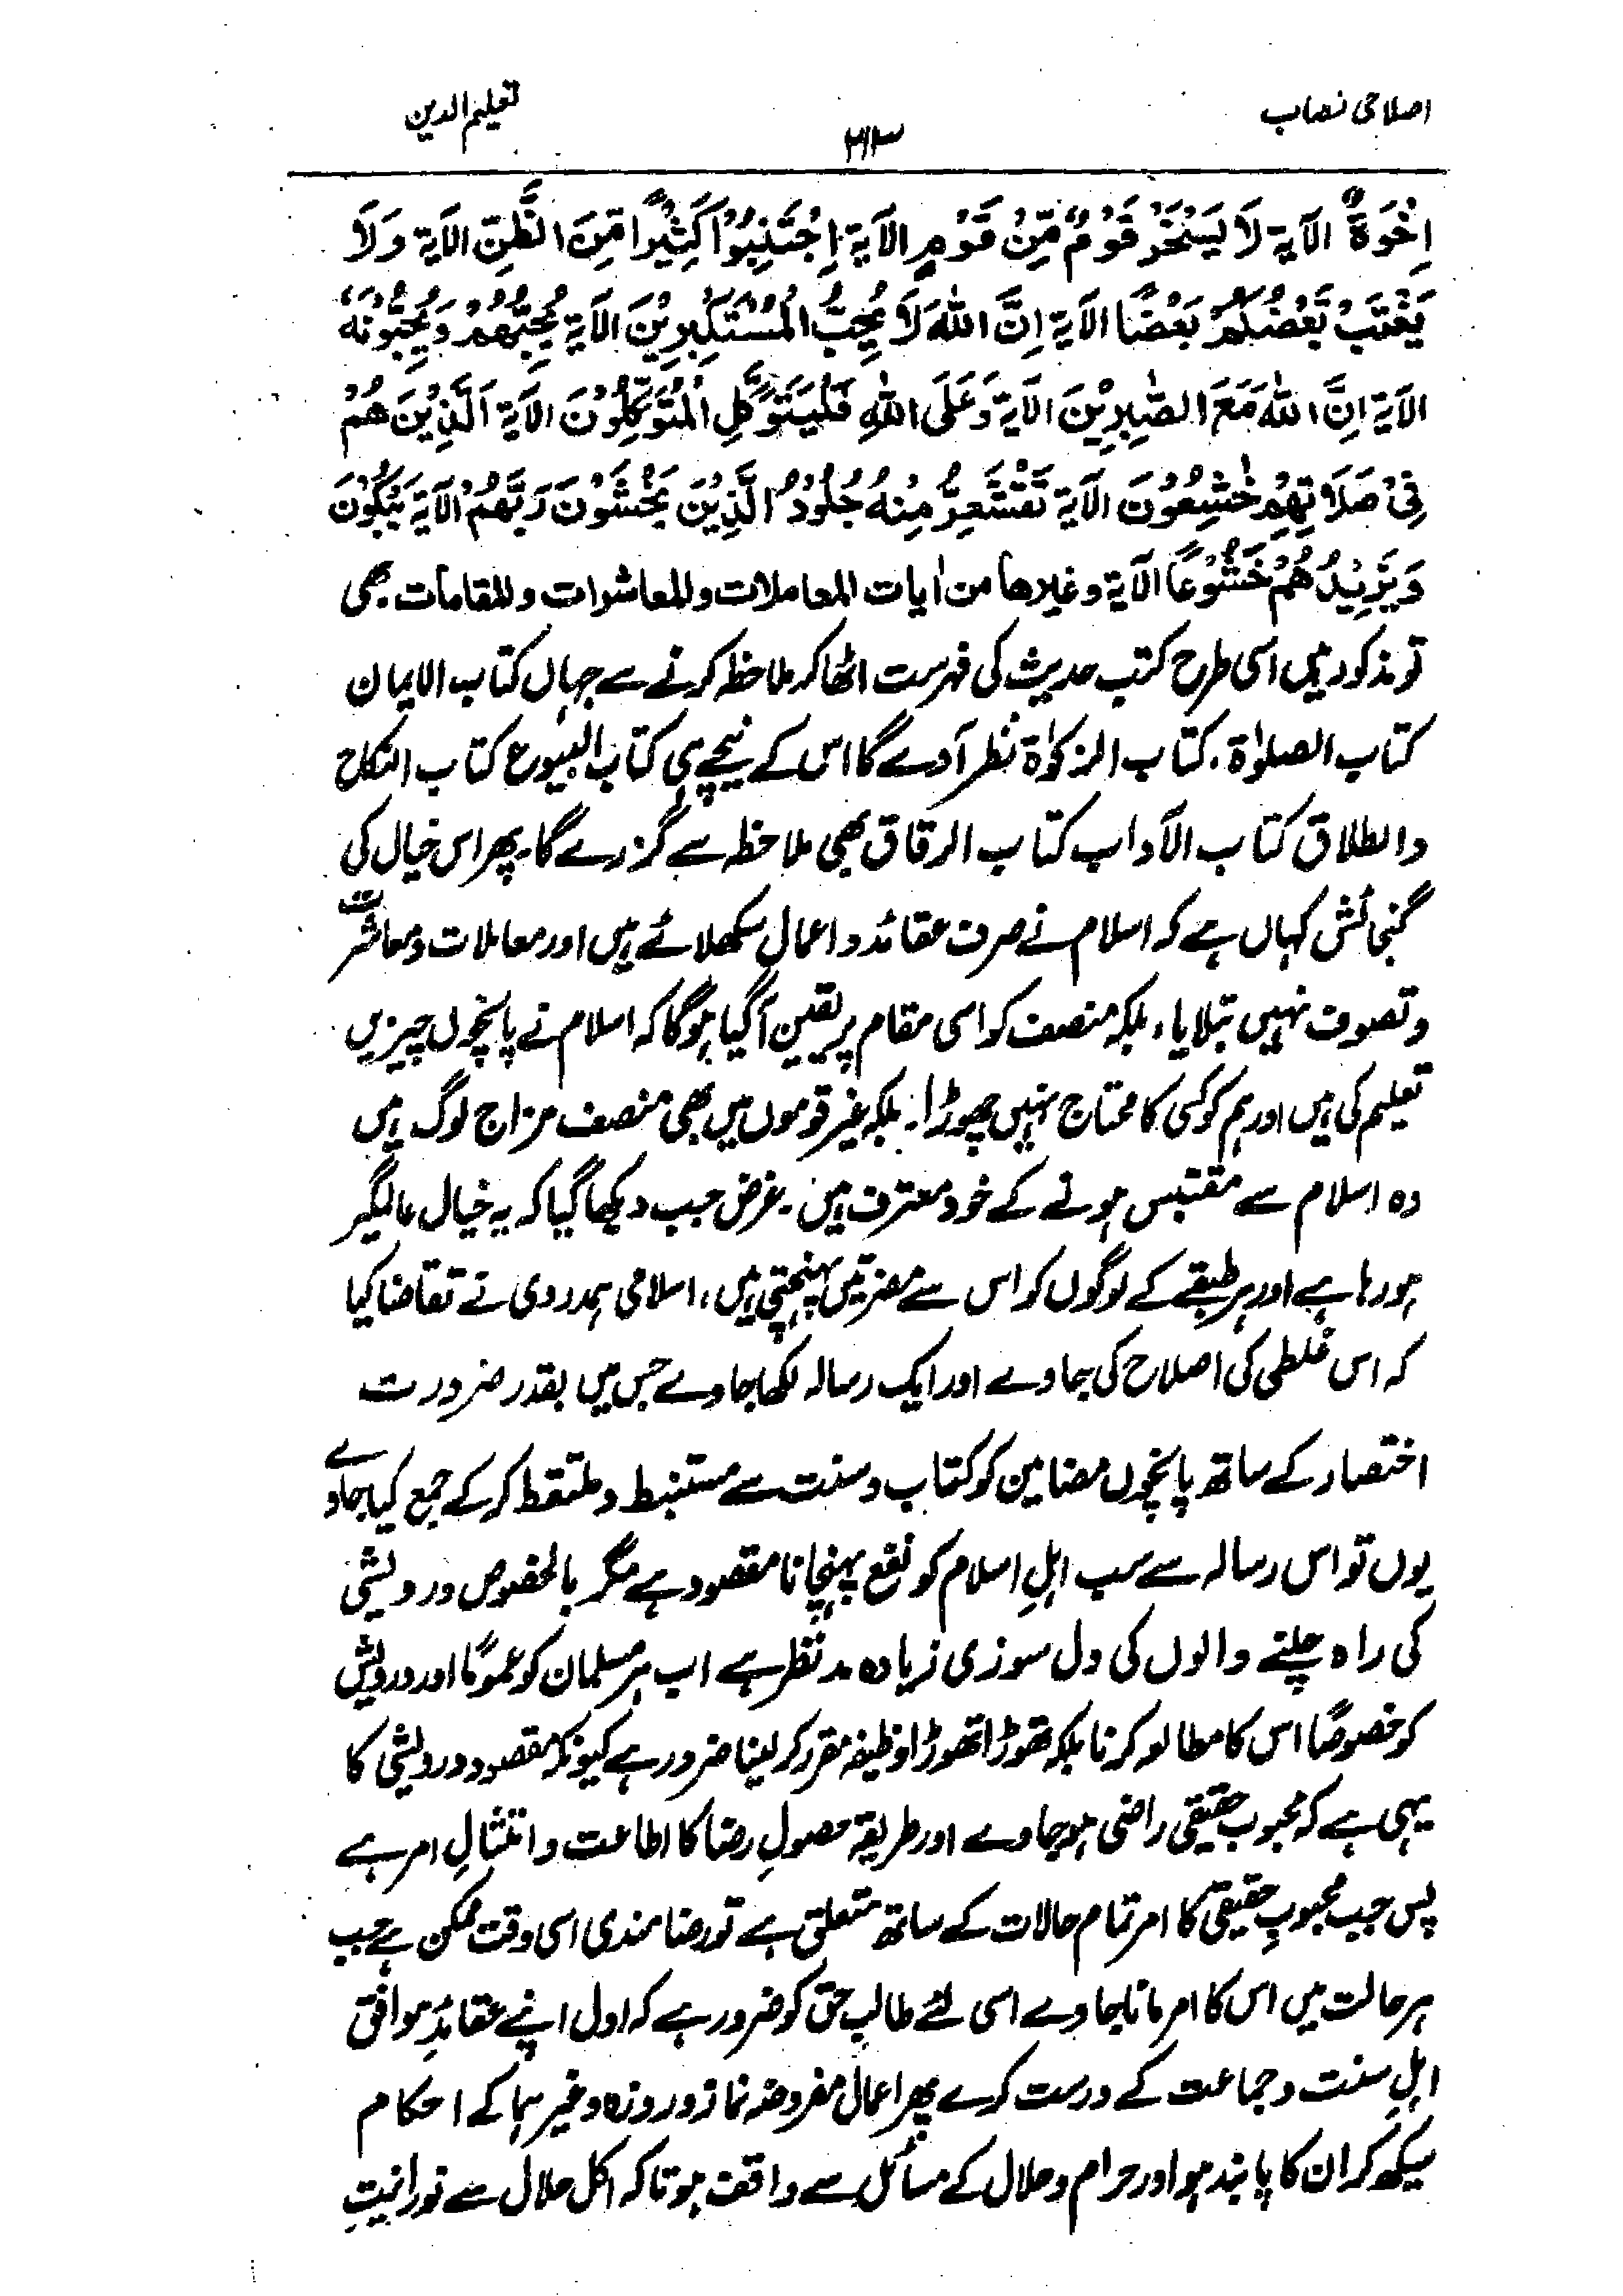 اصلاحی نصاب
۳۱۳
تعلیم الدین
اِخْوَةٌ الآیة لَا یَسْخَرْ قَوْمٌ مِّنْ قَوْمٍ الآیة اِجْتَنِبُوْا کَثِیْرًا مِّنَ الظَّنِّ الآیة وَلَا
یَغْتَبْ بَّعْضُکُمْ بَعْضًا الآیة اِنَّ اللّٰهَ لَا یُحِبُّ الْمُسْتَکْبِرِیْنَ الآیة یُحِبُّهُمْ وَیُحِبُّوْنَهٗ
الآیة اِنَّ اللّٰهَ مَعَ الصّٰبِرِیْنَ الآیة وَعَلَی اللّٰهِ فَلْیَتَوَکَّلِ الْمُتَوَکِّلُوْنَ الآیة اَلَّذِیْنَ هُمْ
فِیْ صَلَاتِهِمْ خٰشِعُوْنَ الآیة تَقْشَعِرُّ مِنْهُ جُلُوْدُ الَّذِیْنَ یَخْشَوْنَ رَبَّهُمْ الآیة یَبْکُوْنَ
وَیَزِیْدُهُمْ خُشُوْعًا الآیة وغیرها من اٰیات المعاملات والمعاشرات والمقامات۔ بھی
تو مذکور ہیں اسی طرح کتب حدیث کی فہرست اٹھا کر ملاحظہ کرنے سے جہاں کتاب الایمان
کتاب الصلوٰۃ، کتاب الزکوٰۃ نظر آوے گا اس کے نیچے ہی کتاب البیوع کتاب النکاح
والطلاق کتاب الآداب کتاب الرقاق بھی ملاحظہ سے گزرے گا۔ پھر اس خیال کی
گنجائش کہاں ہے کہ اسلام نے صرف عقائد و اعمال سکھلائے ہیں اور معاملات و معاشرت
و تصوف نہیں بتلایا، بلکہ منصف کو اسی مقام پر یقین آگیا ہوگا کہ اسلام نے پانچوں چیزیں
تعلیم کی ہیں اور ہم کو کسی کا محتاج نہیں چھوڑا۔ بلکہ غیر قوموں میں بھی منصف مزاج لوگ ہیں
وہ اسلام سے مقتبس ہونے کے خود معترف ہیں۔ غرض جب دیکھا گیا کہ یہ خیال عالمگیر
ہو رہا ہے اور ہر طبقے کے لوگوں کو اس سے مضرتیں پہنچتی ہیں، اسلامی ہمدردی نے تقاضا کیا
کہ اس غلطی کی اصلاح کی جاوے اور ایک رسالہ لکھا جاوے جس میں بقدر ضرورت
اختصار کے ساتھ پانچوں مضامین کو کتاب و سنت سے مستنبط و ملتقط کر کے جمع کیا جاوے
یوں تو اس رسالہ سے سب اہلِ اسلام کو نفع پہنچانا مقصود ہے مگر بالخصوص درویشی
کی راہ چلنے والوں کی دل سوزی زیادہ مدنظر ہے اب ہر مسلمان کو عموماً اور درویش
کو خصوصاً اس کا مطالعہ کرنا بلکہ تھوڑا تھوڑا وظیفہ مقرر کر لینا ضرور ہے کیونکہ مقصود درویشی کا
یہی ہے کہ محبوب حقیقی راضی ہو جاوے اور طریقہ حصولِ رضا کا اطاعت و امتثالِ امر ہے
پس جب محبوبِ حقیقی کا امر تمام حالات کے ساتھ متعلق ہے تو رضامندی اسی وقت ممکن ہے جب
ہر حالت میں اس کا امر مانا جاوے اسی لئے طالبِ حق کو ضرور ہے کہ اول اپنے عقائدِ موافق
اہلِ سنت و جماعت کے درست کرے پھر اعمال مفروضہ نماز و روزہ وغیرہما کے احکام
سیکھ کر ان کا پابند ہو اور حرام و حلال کے مسائل سے واقف ہو تاکہ اکل حلال سے نورانیتِ